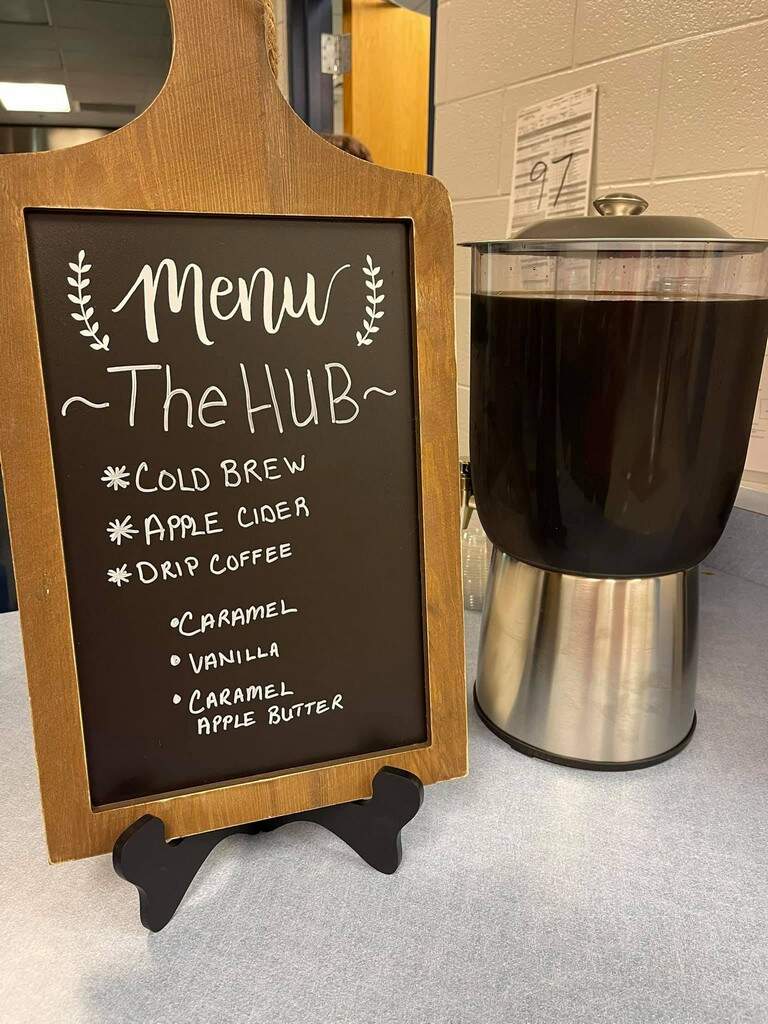 Menu
~The HUB~
*COLD BREW
*APPLE CIDER
*DRIP COFFEE
•CARAMEL
•VANILLA
•CARAMEL
APPLE BUTTER
97